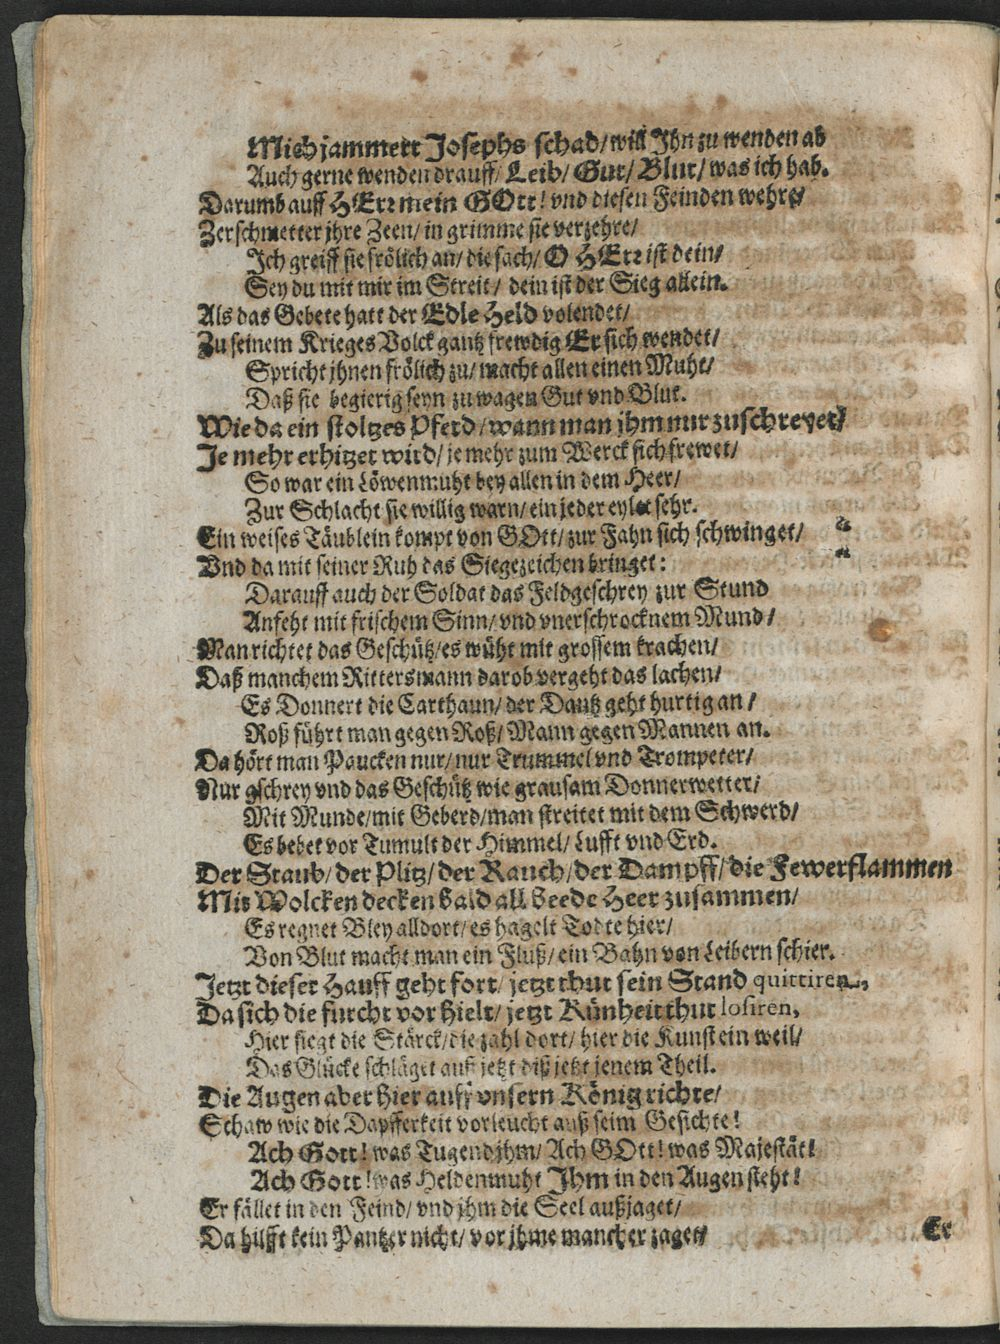 Mich jammert Josephs schad/ will Ihn zu wenden ab
Auch gerne wenden drauff/ Leib/ Gut/ Blut/ was ich hab.
Darumb auff HErr mein GOtt! vnd diesen Feinden wehre/
Zerschmetter jhre Zeen/ in grimme sie verzehre/
Ich greiff sie frölich an/ die sach/ O HErr ist dein/
Sey du mit mir im Streit/ dein ist der Sieg allein.
Als das Gebete hatt der Edle Held volendet/
Zu seinem Krieges Volck gantz frewdig Er sich wendet/
Spricht jhnen frölich zu/ macht allen einen Muht/
Daß sie begierig seyn zu wagen Gut vnd Blut.
Wie da ein stoltzes Pferd/ wann man jhm nur zuschreyet/
Je mehr erhitzet wird/ je mehr zum Werck sich frewet/
So war ein Löwenmuht bey allen in dem Heer/
Zur Schlacht sie willig warn/ ein jeder eylet sehr.
Ein weises Täublein kompt von GOtt/ zur Fahn sich schwinget/
Vnd da mit seiner Ruh das Siegezeichen bringet:
Darauff auch der Soldat das Feldgeschrey zur Stund
Anfeht mit frischem Sinn/ vnd vnerschrocknem Mund/
Man richtet das Geschütz/ es wüht mit grossem krachen/
Daß manchem Rittersmann darob vergeht das lachen/
Es Donnert die Carthaun/ der Dantz geht hurtig an/
Roß führt man gegen Roß/ Mann gegen Mannen an.
Da hört man Paucken nur/ nur Trummel vnd Trompeter/
Nur gschrey vnd das Geschütz wie grausam Donnerwetter/
Mit Munde/ mit Geberd/ man streitet mit dem Schwerd/
Es bebet vor Tumult der Himmel/ Lufft vnd Erd.
Der Staub/ der Plitz/ der Rauch/ der Dampff/ die Fewerflammen
Mit Wolcken decken bald all beede Heer zusammen/
Es regnet Bley alldort/ es hagelt Todte hier/
Von Blut macht man ein Fluß/ ein Bahn von Leibern schier.
Jetzt dieser Hauff geht fort/ jetzt thut sein Stand quittiren,
Da sich die furcht vor hielt/ jetzt Künheit thut losiren,
Hier siegt die Stärck/ die zahl dort/ hier die Kunst ein weil/
Das Glücke schläget auff jetzt diß jetzt jenem Theil.
Die Augen aber hier auff vnsern König richte/
Schaw wie die Dapfferkeit vorleucht auß seim Gesichte!
Ach Gott! was Tugend jhm/ Ach GOtt! was Majestät!
Ach Gott! was Heldenmuht Ihm in den Augen steht!
Er fället in den Feind/ vnd jhm die Seel außjaget/
Da hilfft kein Pantzer nicht/ vor jhme mancher zaget/
Er